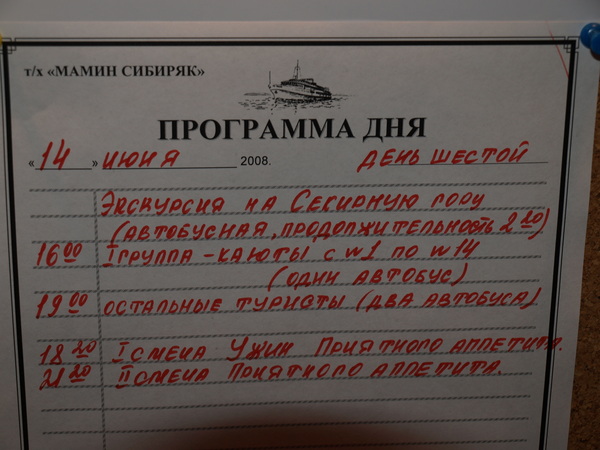 т/х «МАМИН СИБИРЯК»
ПРОГРАММА ДНЯ
«14» ИЮНЯ 2008. ДЕНЬ ШЕСТОЙ
ЭКСКУРСИЯ НА СЕКИРНУЮ ГОРУ
(АВТОБУСНАЯ, ПРОДОЛЖИТЕЛЬНОСТЬ 2 20)
16 00 I ГРУППА - КАЮТЫ С N1 ПО N14
(ОДИН АВТОБУС)
19 00 ОСТАЛЬНЫЕ ТУРИСТЫ (ДВА АВТОБУСА)
18 20 I СМЕНА УЖИН ПРИЯТНОГО АППЕТИТА.
21 20 II СМЕНА ПРИЯТНОГО АППЕТИТА.